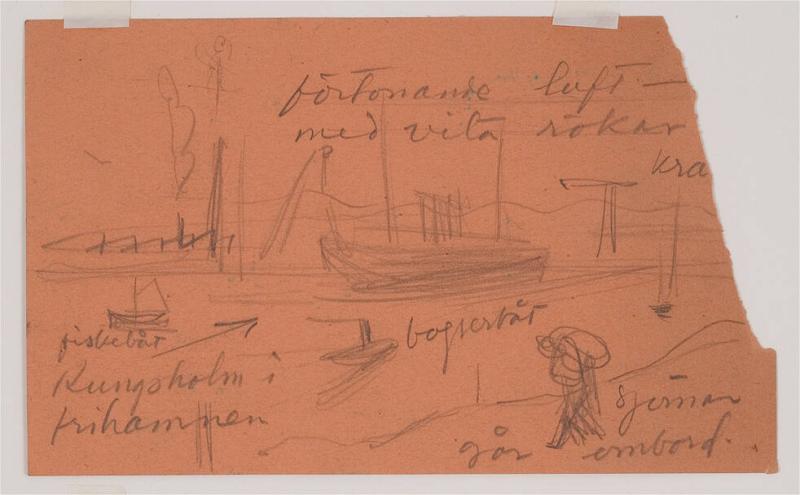 förtonande luft —
med vita rökar
kra
fiskebåt
bogserbåt
Kungsholm i
frihamnen
sjöman
går ombord.